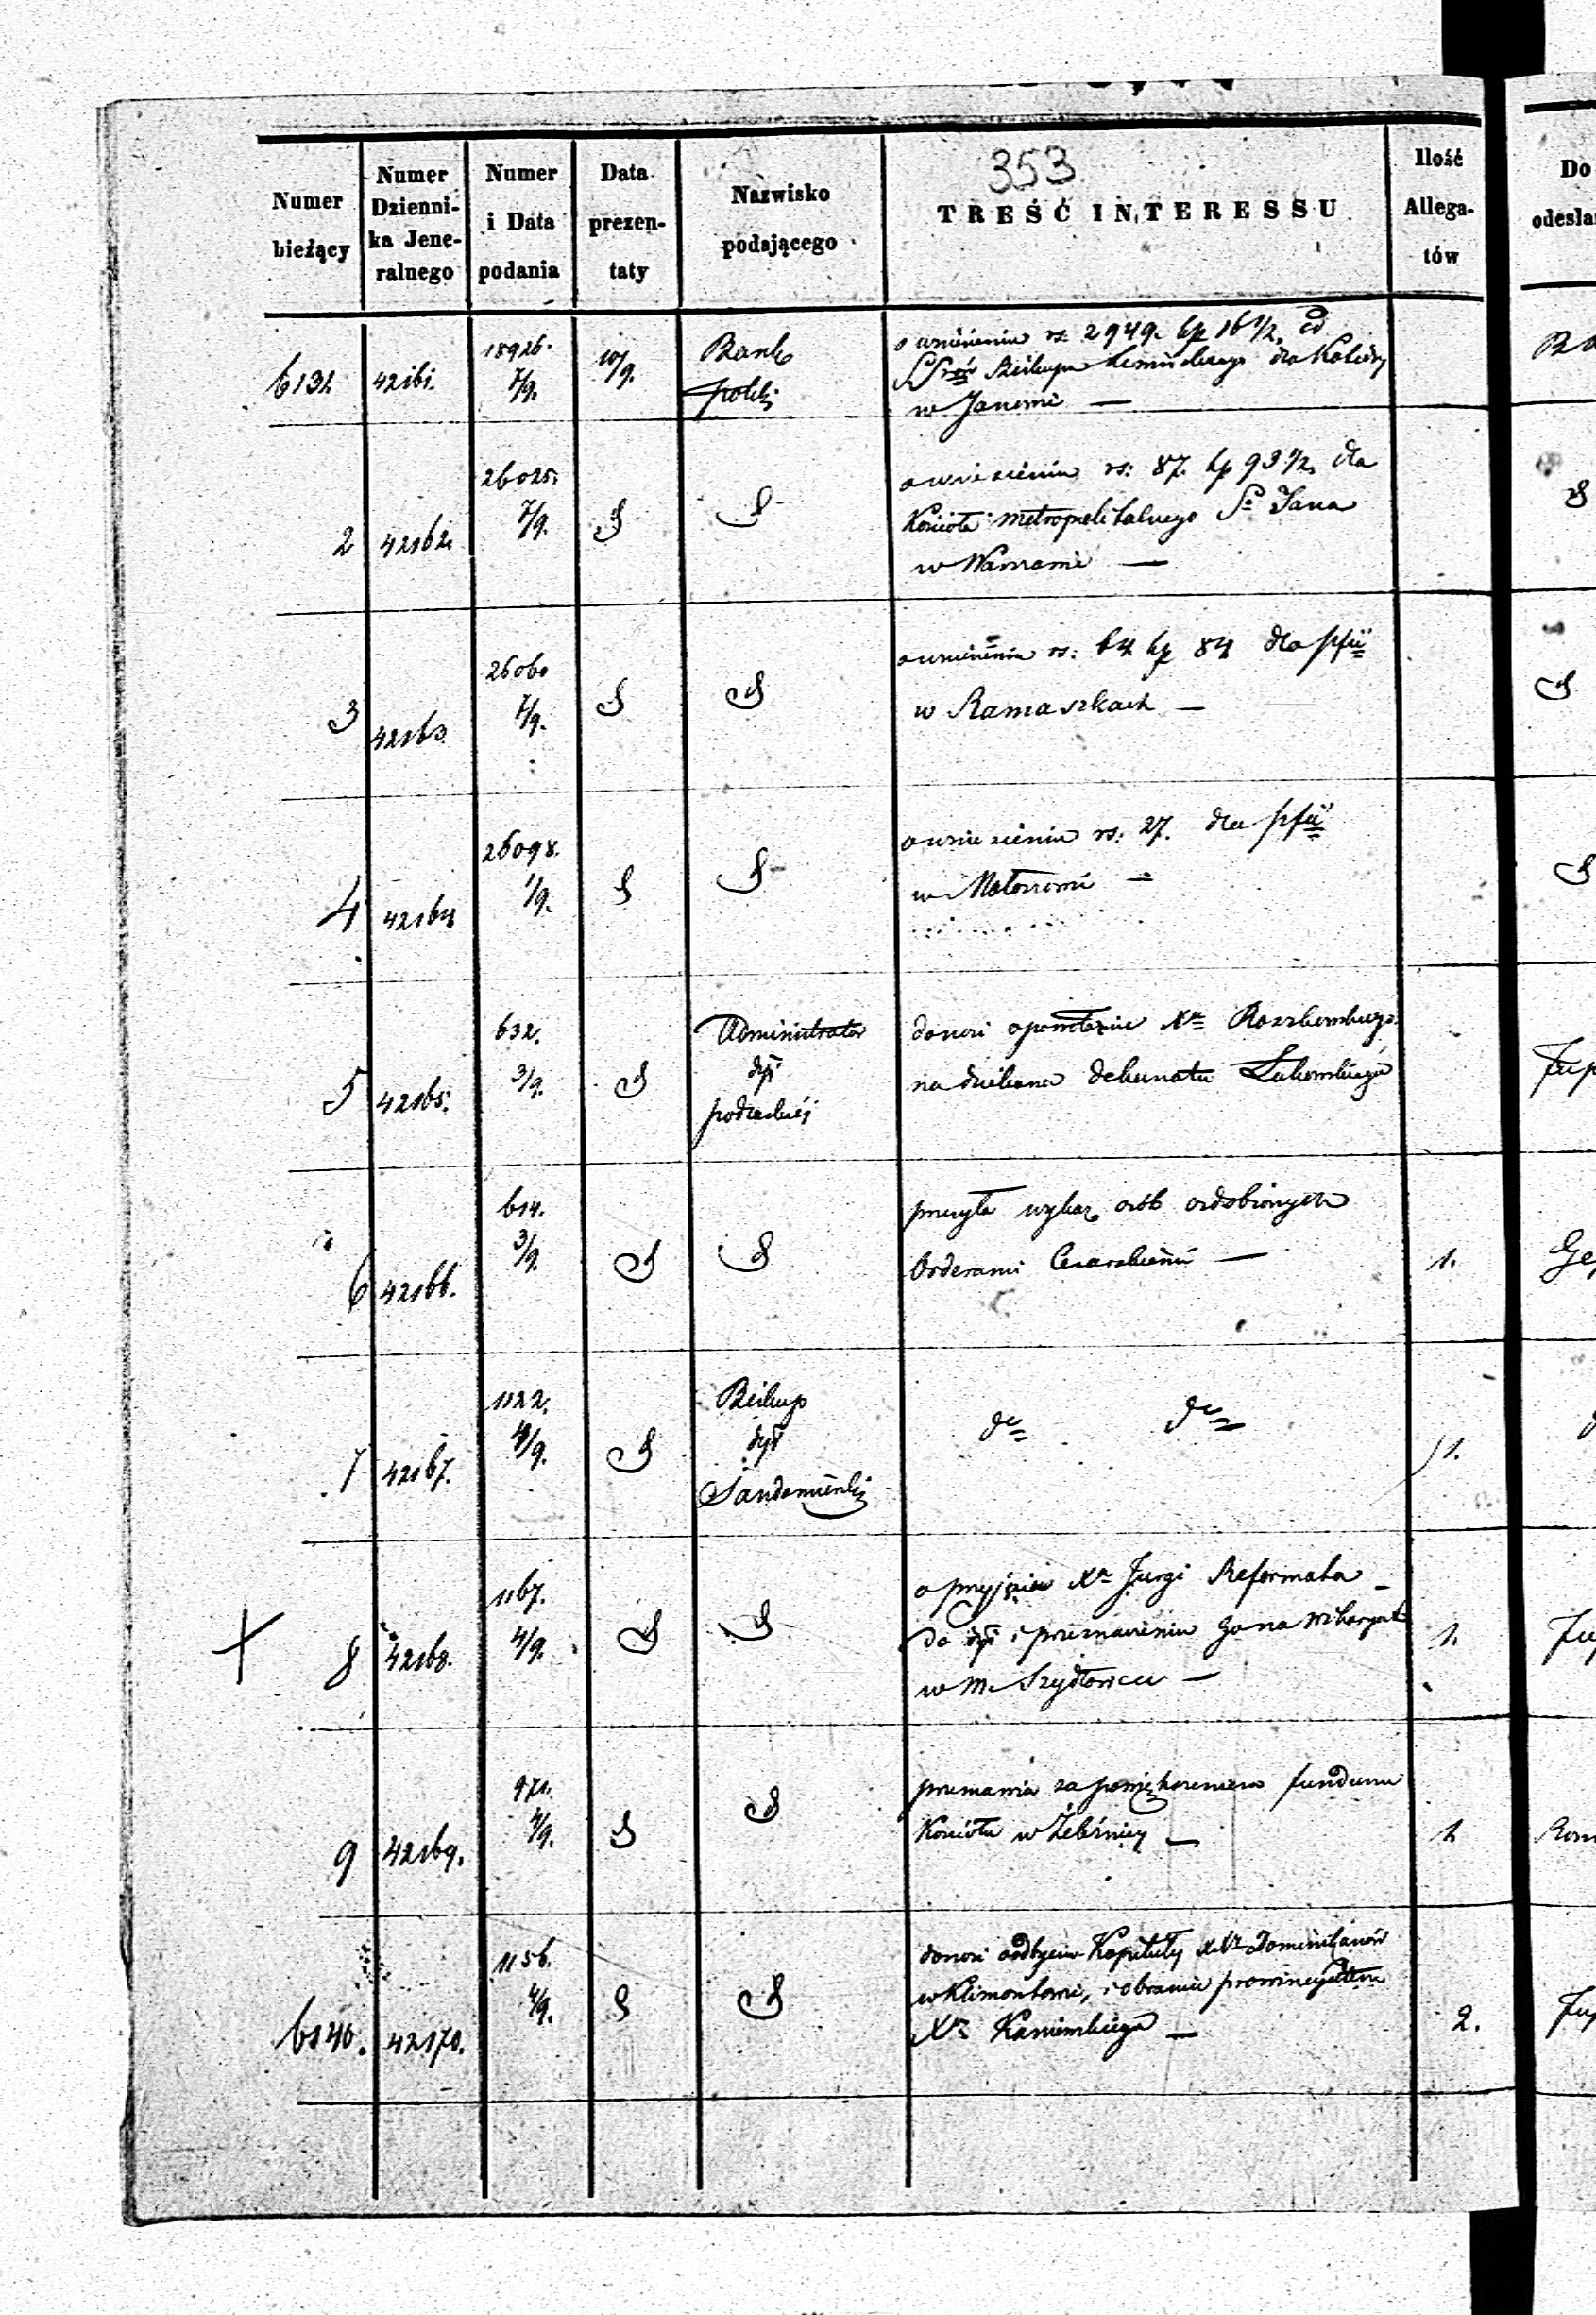 353
Numer bieżący
Numer Dzienni-ka Jene-ralnego
Numer i Data podania
Data prezen-taty
Nazwisko podającego
TREŚĆ INTERESSU
Ilość Allega-tów
Do
odesła
6131 42161. 18926. 7/9. 10/9. Bank
polski
o wniesieniu rs. 2949. kp 16 1/2, od
Biskupa dla Katedry
w Janowie —
2 42162. 26025. 7/9. S S
o wniesieniu rs: 87. kp 93 1/2, dla
Kościoła metropolitalnego Sº Jana
w Warszawie —
3 42163 26060 7/9. S S
o wniesieniu rs: 64 kp 84 dla pfii
w Ramaszkach —
4 42164 26098. 1/9. S S
o wniesieniu rs: 27. dla pfii
w
5 42165. 632. 3/9. S Administrator
dyi
podlaskiéj
donosi o powołanie Xa
na dziekana dekanatu Łukowskiego
6 42166. 614. 3/9. S S
przesyła wykaz osób ozdobionych
Orderami Cesarskiemi —
1.
7 42167. 1122. 4/9. S Biskup
dyi
Sandomierski
dº dº
1.
8 42168. 1167. 4/9. S S
o przyjęciu Xa Jurgi Reformata
do dyi i przeznaczeniu go na Wikaryat
w m. Szydłowcu —
1.
9 42169. 971. 4/9. S S
przemawia za powiększeniem funduszu
Kościoła w Żeleźnicy —
1
6140. 42170. 1156. 4/9. S S
donosi o odbyciu Kapituły XXy Dominikanów
w Klimontowie, i obraniu prowincyałem
Xa
2.